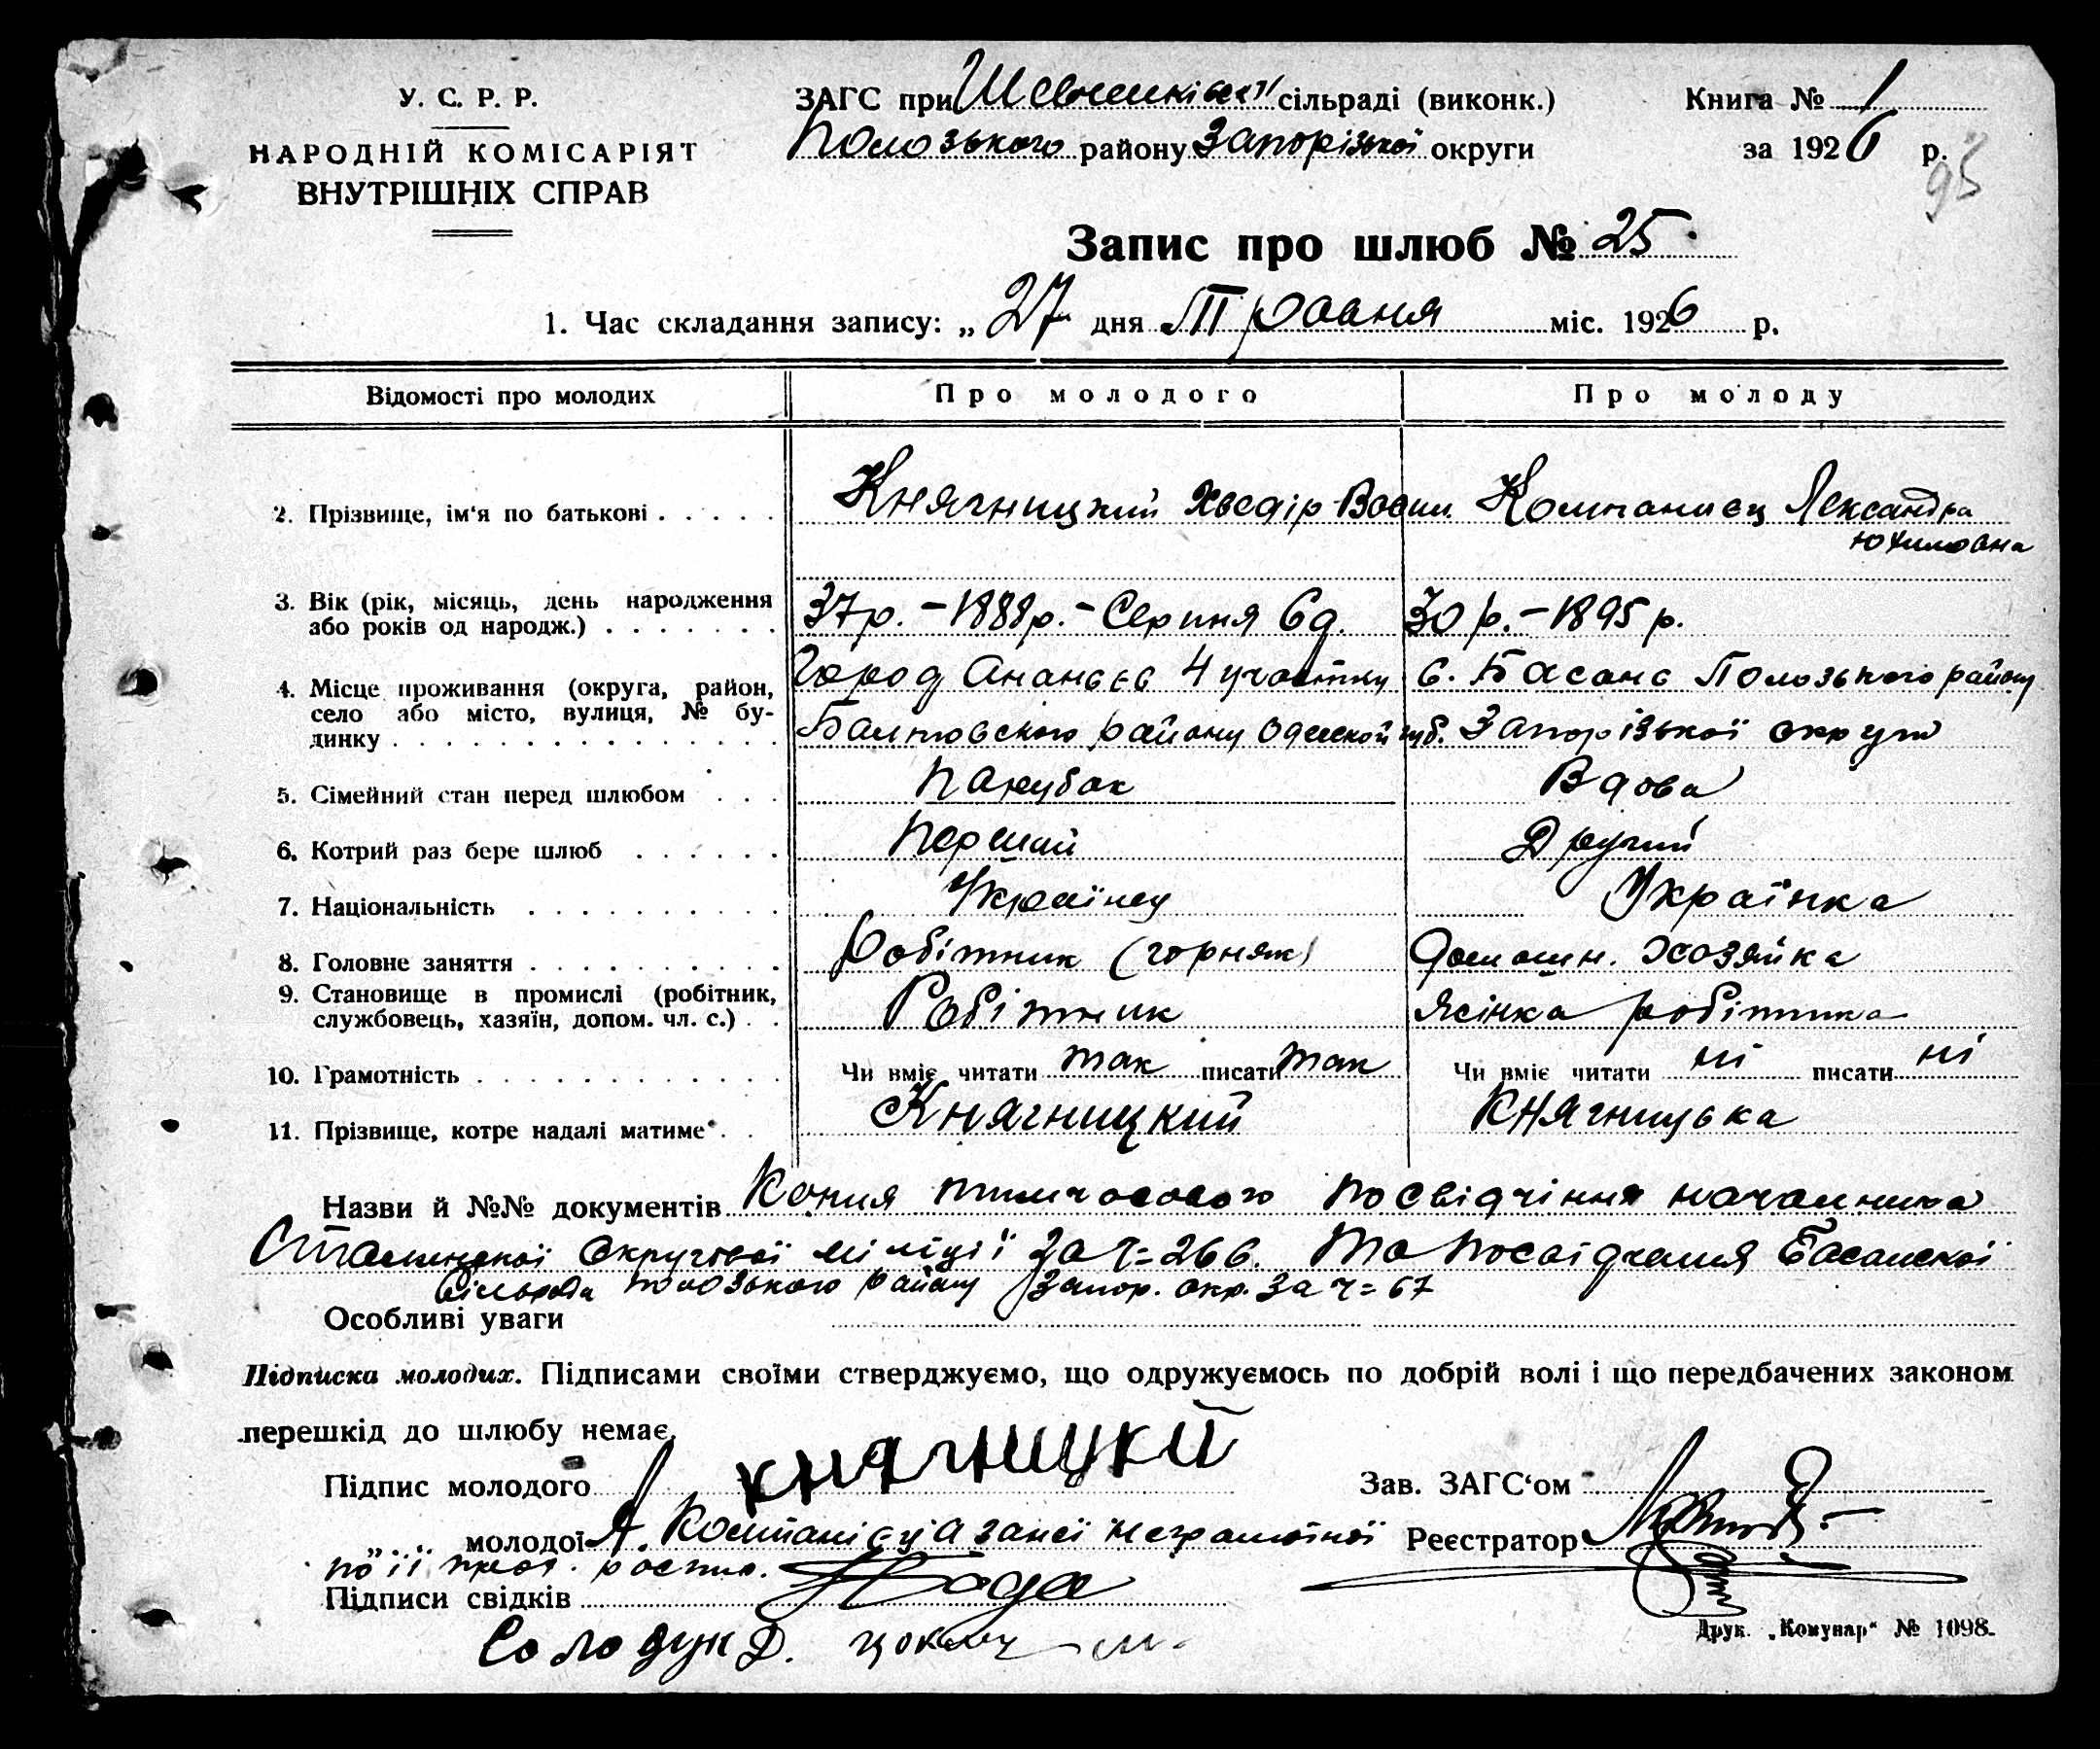 У. С. Р. Р.
НАРОДНІЙ КОМІСАРІЯТ
ВНУТРІШНІХ СПРАВ
ЗАГС при Шевченківській сільраді (виконк.)
Полозького району Запорізької округи
Книга № 1
за 1926 р.
95
Запис про шлюб № 25.
1. Час складання запису: „ 27 дня Травня міс. 1926 р.
Відомості про молодих Про молодого Про молоду
2. Прізвище, ім'я по батькові Княгницкий Хведір Васил. Компаниец Лександра
Юхимовна
3. Вік (рік, місяць, день народження або років од народж.) 37р. – 1888р. – Серпня 6д. 30 р. – 1895 р.
4. Місце проживання (округа, район, село або місто, вулиця, № будинку) Город Ананьєв 4 участку с. Басань Полозького району
Балтовского району Одеской губ. Запорізької округи
5. Сімейний стан перед шлюбом Парубок Вдова
6. Котрий раз бере шлюб Перший Другий
7. Національність Українец Українка
8. Головне заняття Робітник (горняк) Домашн. Хозяйка
9. Становище в промислі (робітник, службовець, хазяїн, допом. чл. с.) Робітник робітника
10. Грамотність Чи вміє читати так писати так Чи вміє читати ні писати ні
11. Прізвище, котре надалі матиме Княгницкий Княгницька
Назви й №№ документів Копия тимчасового посвідчіння начальника
Сталинской Округової міліції за ч= 266. Та Посвідчення Басанской
Сільради Полозького району Запор. окр. за ч= 67
Особливі уваги
Підписка молодих. Підписами своїми стверджуємо, що одружуємось по добрій волі і що передбачених законом
перешкід до шлюбу немає.
Підпис молодого княгницкй
Зав. ЗАГС'ом
„ молодої А. Компанієц а занеї неграмотної
Реєстратор
по її прос. роспис.
Підписи свідків
Солодун Д.
Друк. „Комунар" № 1098.